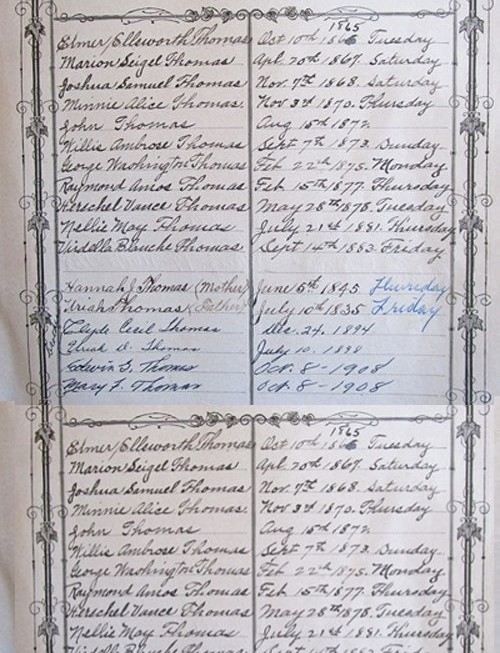 1865
Elmer Ellsworth Thomas Oct 10th 1866 Tuesday
Marion Seigel Thomas Apl. 20th 1867. Saturday
Joshua Samuel Thomas Nov. 7th 1868. Saturday
Minnie Alice Thomas. Nov 3rd 1870. Thursday
John Thomas Aug 15th 1872
Willis Ambrose Thomas Sept 7th 1873. Sunday
George Washington Thomas Feb 22th 1875. Monday
Raymond Amos Thomas Feb 15th 1877. Thursday
Herschel Vance Thomas May 28th 1878. Tuesday
Nellie May Thomas July 21st 1881. Thursday
Virdella Blanche Thomas. Sept 14th 1883. Friday
Hannah J. Thomas (Mother) June 5th 1845 Thursday
Uriah Thomas (Father) July 10th 1835 Friday
Clyde Cecil Thomas Dec. 24. 1894
D. Thomas July 10. 1898
Edwin G. Thomas Oct. 8 - 1908
Mary F. Thomas Oct. 8 - 1908
1865
Elmer Ellsworth Thomas Oct 10th 1866 Tuesday
Marion Seigel Thomas Apl. 20th 1867. Saturday
Joshua Samuel Thomas Nov. 7th 1868. Saturday
Minnie Alice Thomas. Nov 3rd 1870. Thursday
John Thomas Aug 15th 1872
Willis Ambrose Thomas Sept 7th 1873. Sunday
George Washington Thomas Feb 22th 1875. Monday
Raymond Amos Thomas Feb 15th 1877. Thursday
Herschel Vance Thomas May 28th 1878. Tuesday
Nellie May Thomas July 21st 1881. Thursday